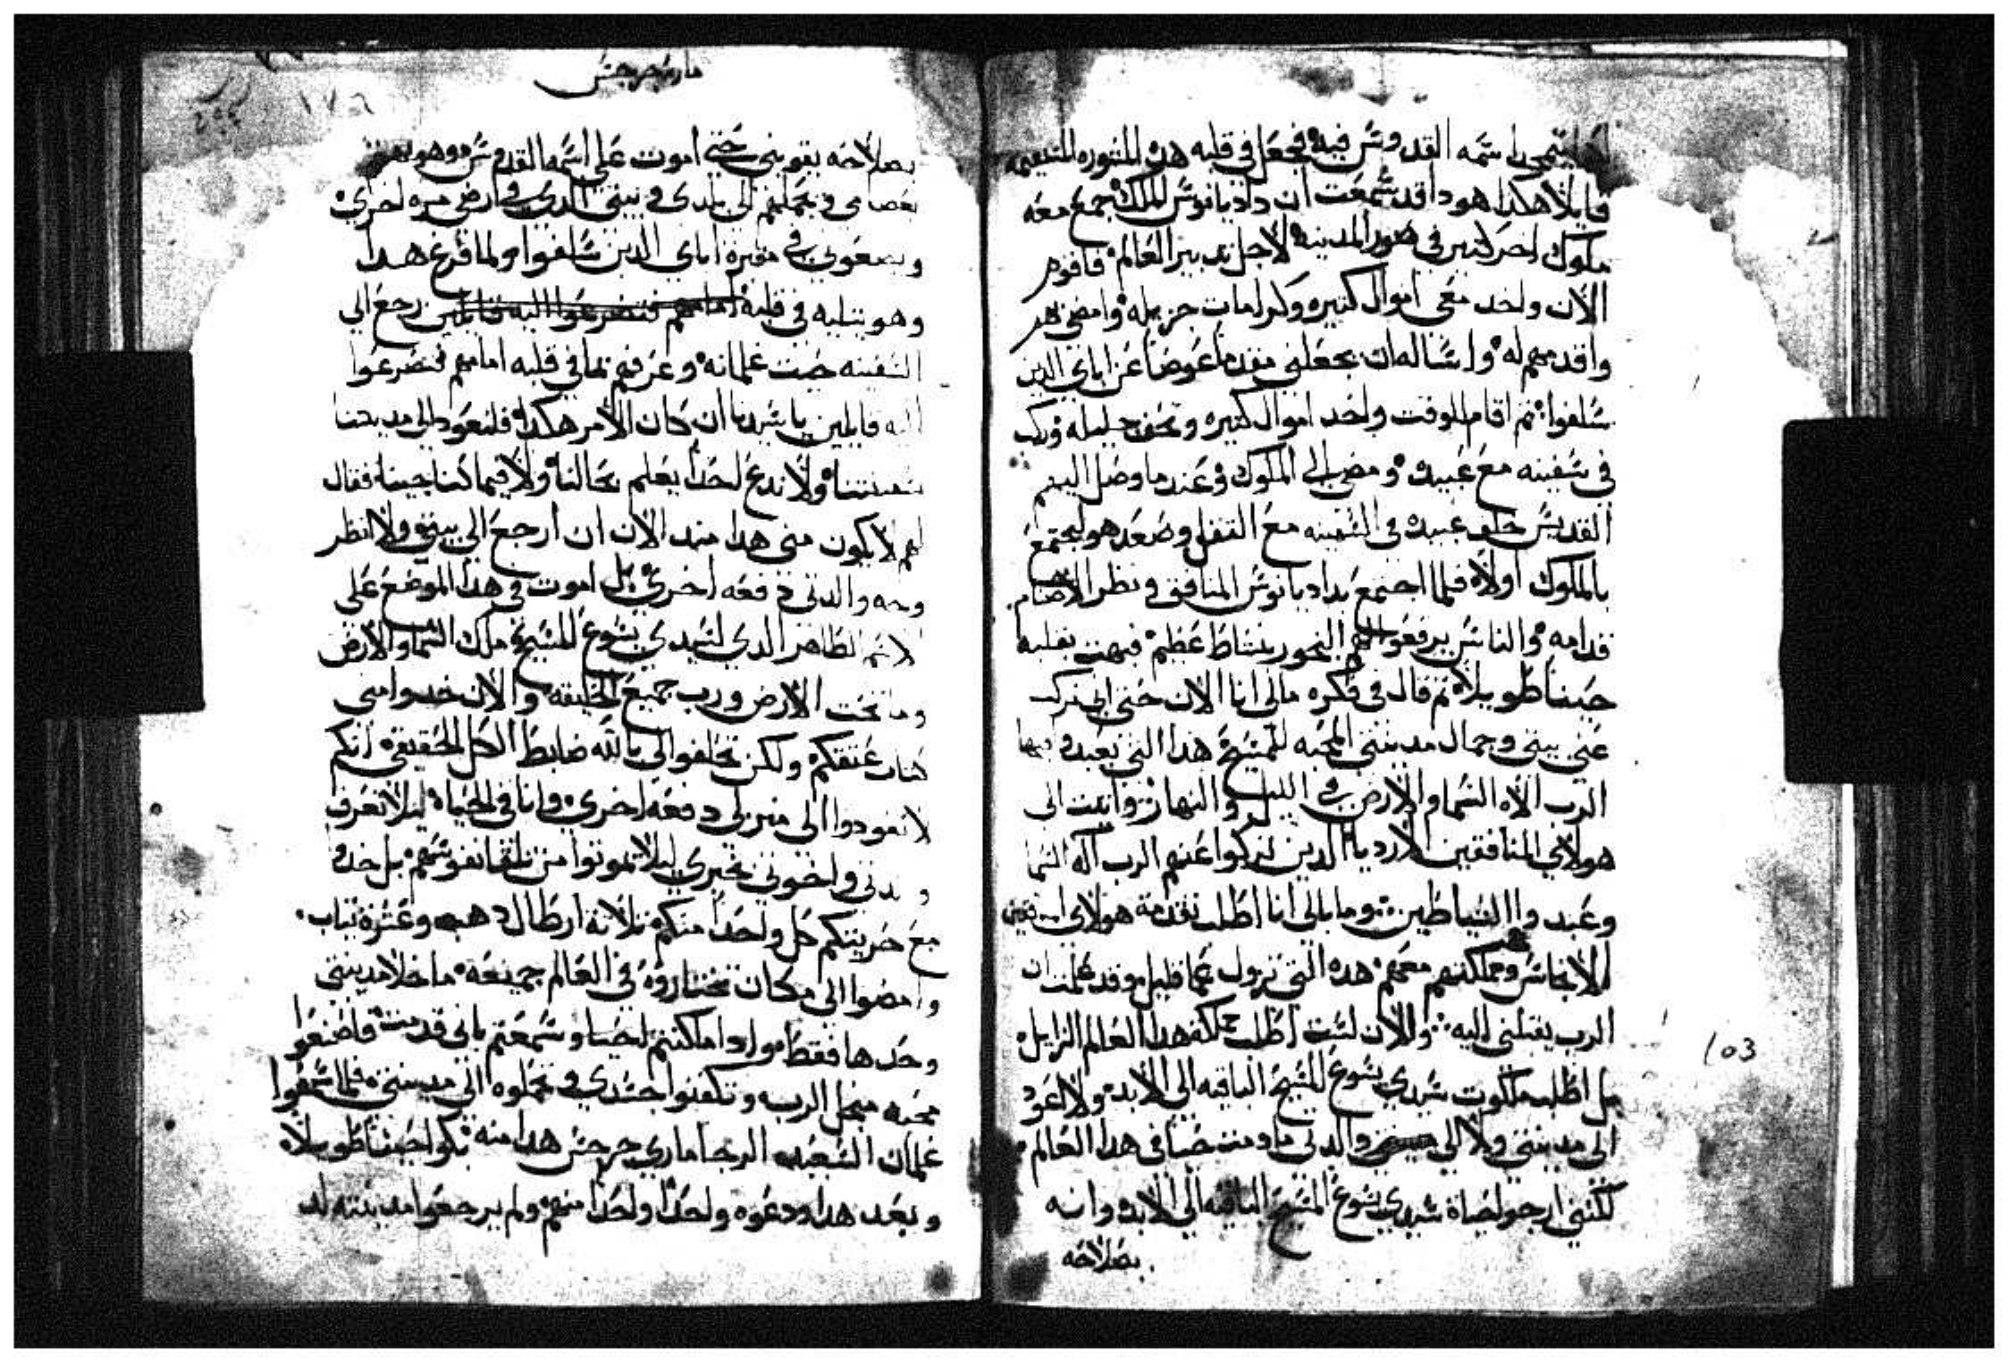 اسمه القدوس فيه فجعل في قلبه هذه المشوره
قايلا هكدا هودا قد سمعت ان داديانوس الملك جمع معه
ملوك اخر كتير في صور المدينه لاجل تدبير العالم فاقوم
الان واخد معي اموال كتيره وكرامات جزيله وامضي
واقدمهم له واساله ان يجعلني مقدما عوضا عن اباي الدين
سلفوا تم اقام الوقت واخد اموال كتيره وتحف جليله وركب
في سفينه مع عبيده ومضي الي الملوك وعند ما وصل اليهم
القديس خلف عبيده في السفينه مع التقل وصعد هو ليجتمع
بالملوك اولا فلما اجتمع بدادياנוس المنافق ونظر الاصنام
قدامه والناس يرفعوا لهم البخور بنشاط عظيم فبهت بقلبه
حينا طويلا تم قال في فكره مالي انا الان حتي اني تركت
عني بيتي وجمال مدينتي المحبه للمسيح هدا التي يعبدو فيها
الرب الاه السما والارض في الليل والنهار واتيت الي
هولاي المنافقين الارديا الدين تركوا عنهم الرب اله السما
وعبدوا الشياطين وما بالي انا اطلب تقدمة هولاي
الانجاس ومملكتهم معهم هده التي تزول عما قليل وقد علمت ان
الرب يقبلني اليه والان لست اطلب مملكة هدا العالم الزايل
بل اطلب ملكوت سيدي يسوع المسيح الباقيه الي الابد ولا اعود
الي مدينتي ولا الي والدتي ما دمت حيا في هدا العالم
لكنني ارجو لحياة سيدي يسوع المسيح الباقيه الي الابد وانه
بصلاحه
103
ماري جرجس
١٧٥
بصلاحه يقويني حتي اموت علي اسمه القدوس وهو يجمع
عضامي ويحملهم الي بلدي وبيتي الدي في ارضي مره اخري
ويضعوني في مقبرة اباي الدين سلفوا ولما فرغ هدا
وهو يتليه في قلبه امامهم فتضرعوا اليه قايلين رجع الي
السفينه حيت غلمانه وعرفهم بما في قلبه امامهم فتضرعوا
اليه قايلين يا سيدنا ان كان الامر هكدا فلنعود الي مدينتنا
بسفينتنا ولا ندع احدا يعلم بحالنا ولا فيما كنا جينا فقال
لهم لا يكون مني هدا مند الان ان ارجع الي بيتي ولا انظر
وجه والدتي دفعه اخري بل اموت في هدا الموضع علي
الاسم الطاهر الدي لسيدي يسوع المسيح ملك السما والارض
وما تحت الارض ورب جميع الخليقه والان خدوا مني
كتاب عتقكم ولكن تحلفوا لي بالله ضابط الكل الحقيقي انكم
لا تعودوا الي منزلي دفعه اخري وانا في الحياه ليلا تعرف
والدتي واخوتي بخبري ليلا تموتوا من تلقا نفوسهم بل خدو
مع حريتكم كل واحدا منكم تلاتة ارطال دهب وعشرة تياب
وامضوا الي مكان تختاروه في العالم جميعه ما خلا مدينتي
وحدها فقط وادا ما كنتم احيا وسمعتم باني قد مت فاصنعوا
محبه من اجل الرب وتكفنوا جسدي وتحملوه الي مدينتي فلما سمعوا
غلمان السعيد الرجا ماري جرجس هدا منه بكوا حينا طويلا
وبعد هدا ودعوه واحدا واحدا منهم ولم يرجعوا مدينته لد